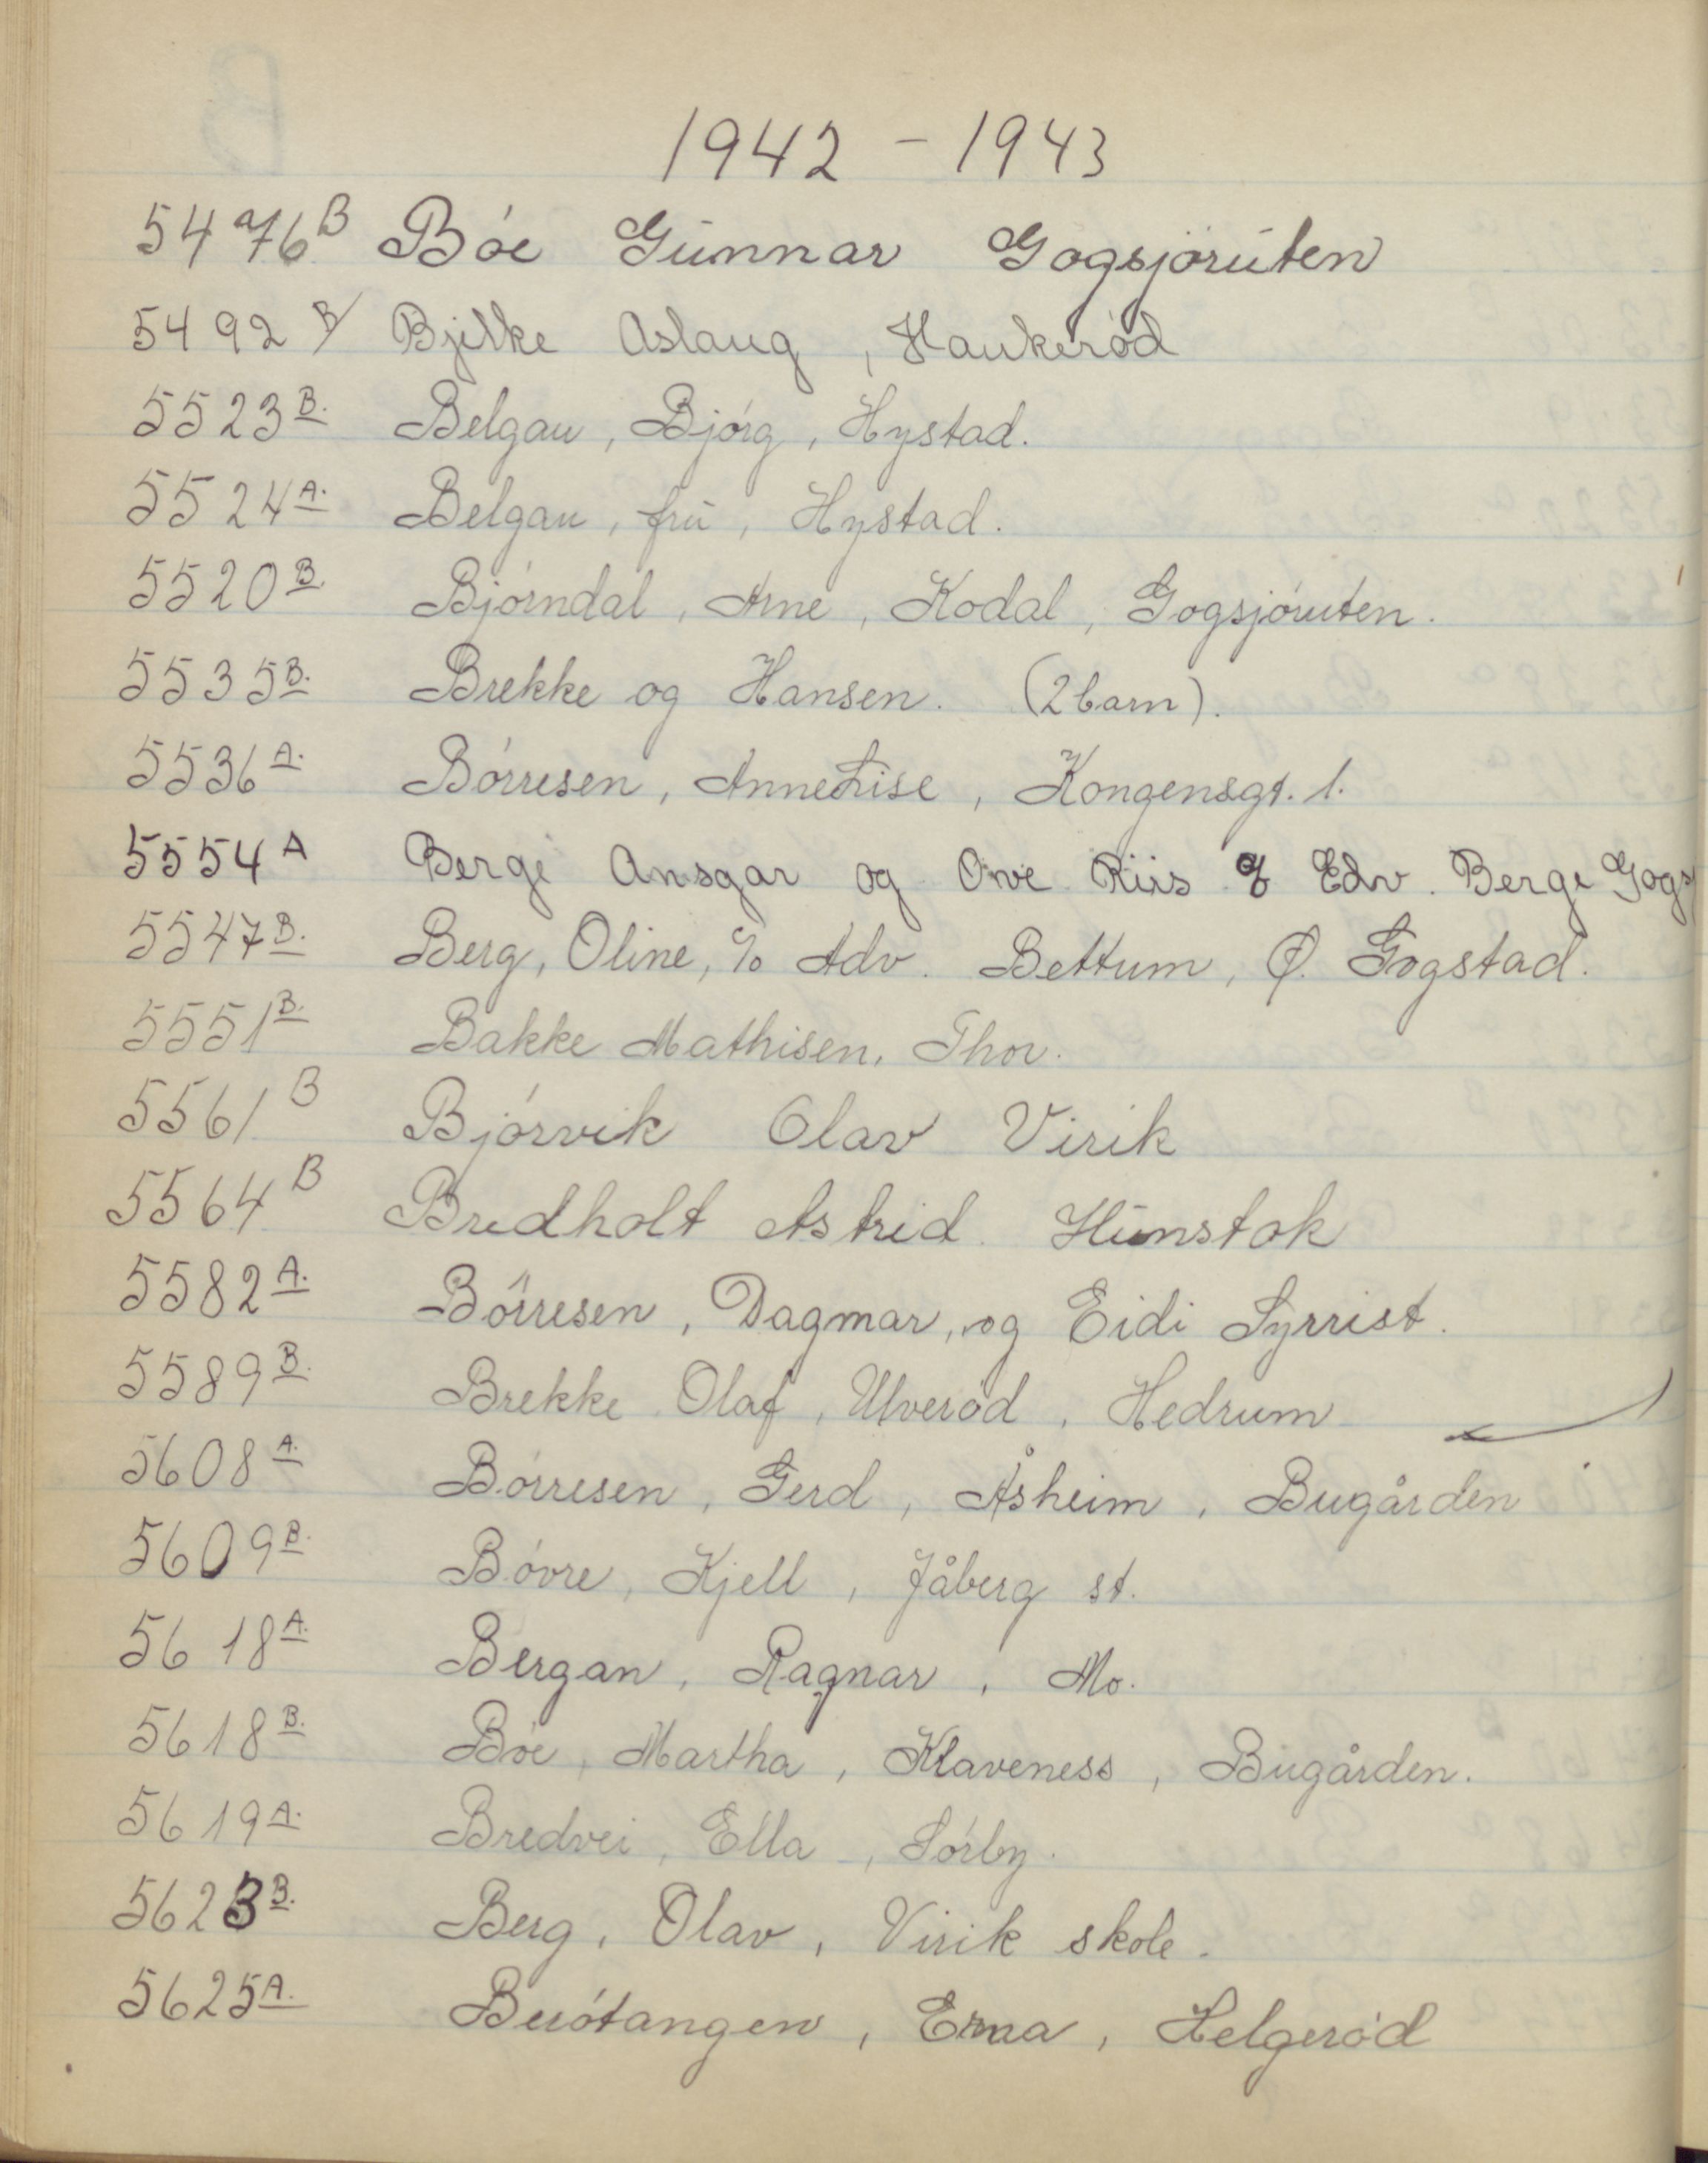 1942 - 1943
5476 B Bóe Gunnar Gogsjóruten
5492 B Bjelke Aslaug, Haukeród
5523 B. Belgau, Bjórg, Hystad.
5524 A. Belgau, fru, Hystad.
5520 B. Bjórndal, Arne, Kodal, Gogsjóruten.
5535 B. Brekke og Hansen. (2 barn).
5536 A. Bórresen, Anne Lise, Kongensgt. 1.
5554 A Berge Ansgar og Ove Riis % Edv. Berge Gogsj
5547 B. Berg, Oline, % Adv. Bettum, Ø. Gogstad.
5551 B. Bakke Mathisen, Thor.
5561 B Bjórvik Olav Virik
5564 B Bredholt Astrid. Hunstok
5582 A. Bórresen, Dagmar, og Eidi Syrrist.
5589 B. Brekke Olaf, Ulveród, Hedrum
5608 A. Bórresen, Gerd, Åsheim, Bugården
5609 B. Bóvre, Kjell, Jåberg st.
5618 A. Bergan, Ragnar, Mo.
5618 B. Bóe, Martha, Klaveness, Bugården.
5619 A. Bredvei, Ella, Sórby.
5623 B. Berg, Olav, Virik skole.
5625 A. Beuótangen, Erna, Helgeród